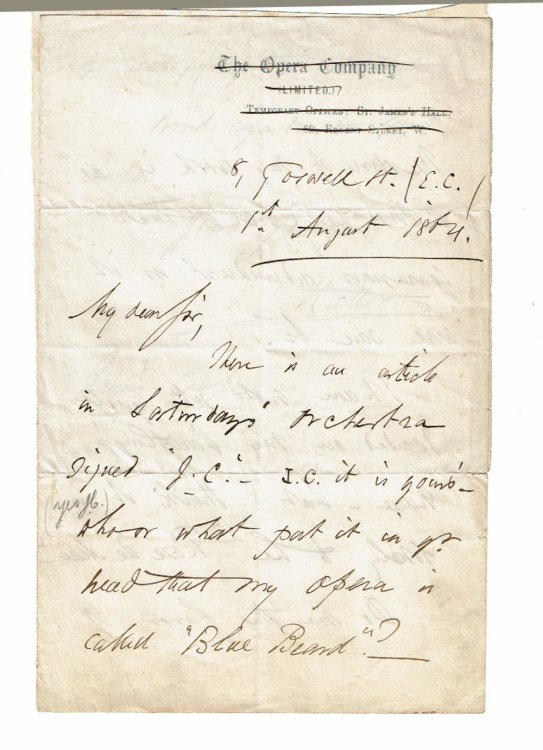 The Opera Company
(LIMITED.)
TEMPORARY OFFICES: ST. JAMES'S HALL,
69, REGENT STREET, W.
8, Goswell St. (E.C.)
1st August 1864.
My dear Sir,
There is an article
in Saturdays' Orchestra
signed "J.C." – I.C. it is yours –
(yes J.C.)
who or what put it in yr
head that my opera is
called "Blue Beard"? —